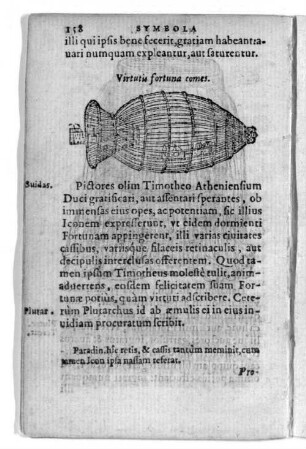 158 SYMBOLA
illi qui ipsis bene fecerit, gratiam habeantra-
uari numquam expleantur, aut saturentur.
Virtutis fortuna comes.
Suidas. Pictores olim Timotheo Atheniensium
Duci gratificari, aut assentari sperantes, ob
immensas eius opes, ac potentiam, sic illius
Iconem expresserunt, vt eidem dormienti
Fortunam appingerent, illi varias ciuitates
cassibus, varijsque filaceis retinaculis, aut
decipulis interclusas offerentem. Quod ta-
men ipsum Timotheus molestè tulit, anim-
aduertens, eosdem felicitatem suam For-
tunæ potius, quàm virtuti adscribere. Cete-
Plutar. rùm Plutarchus id ab æmulis ei in eius in-
uidiam procuratum scribit.
Paradin. hîc retis, & cassis tantùm meminit, cum
tamen Icon ipsa nassam referat.
Pro-